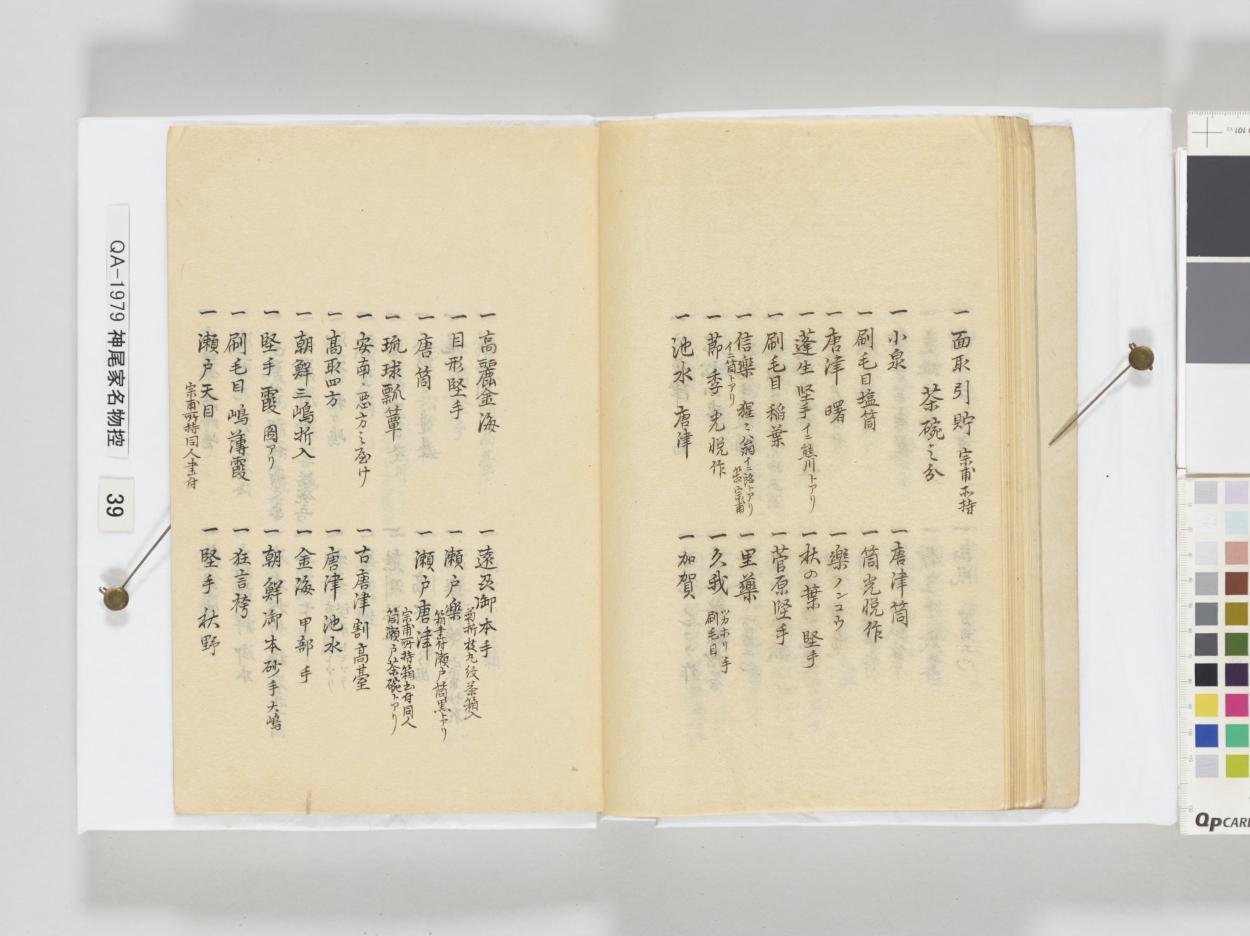 一 面取 引貯 宗甫所持
茶碗之分
一 小泉
一 唐津筒
一 刷毛目塩筒
一 筒光悦作
一 唐津 曙
一 樂ノンコウ
一 蓬生 堅手 イニ熊川トアリ
一 秋の葉 堅手
一 刷毛目 稲葉
一 菅原堅手
一 信樂 猩々翁
イニ筒トアリ
一 里藥
一 節季 光悦作
一 久我
刷毛目
一 池水 唐津
一 加賀
一 高麗金海
一 遠及御本手
菊折枝九紋茶箱入
一 目形堅手
一 瀬戸樂
箱書付瀬戸筒黒トアリ
一 唐筒
一 瀬戸唐津
宗甫所持箱書付同人
筒瀬戸茶碗トアリ
一 琉球瓢箪
一 安南
一 古唐津割高臺
一 高取四方
一 唐津 池水
一 朝鮮三嶋折入
一 金海 甲部手
一 堅手 霞 圖アリ
一 朝鮮御本砂手 大嶋
一 刷毛目 嶋薄霞
一 狂言袴
一 瀬戸天目
宗甫所持同人書付
一 堅手 秋野
QA-1979 神尾家名物控
39
QP CARD
101